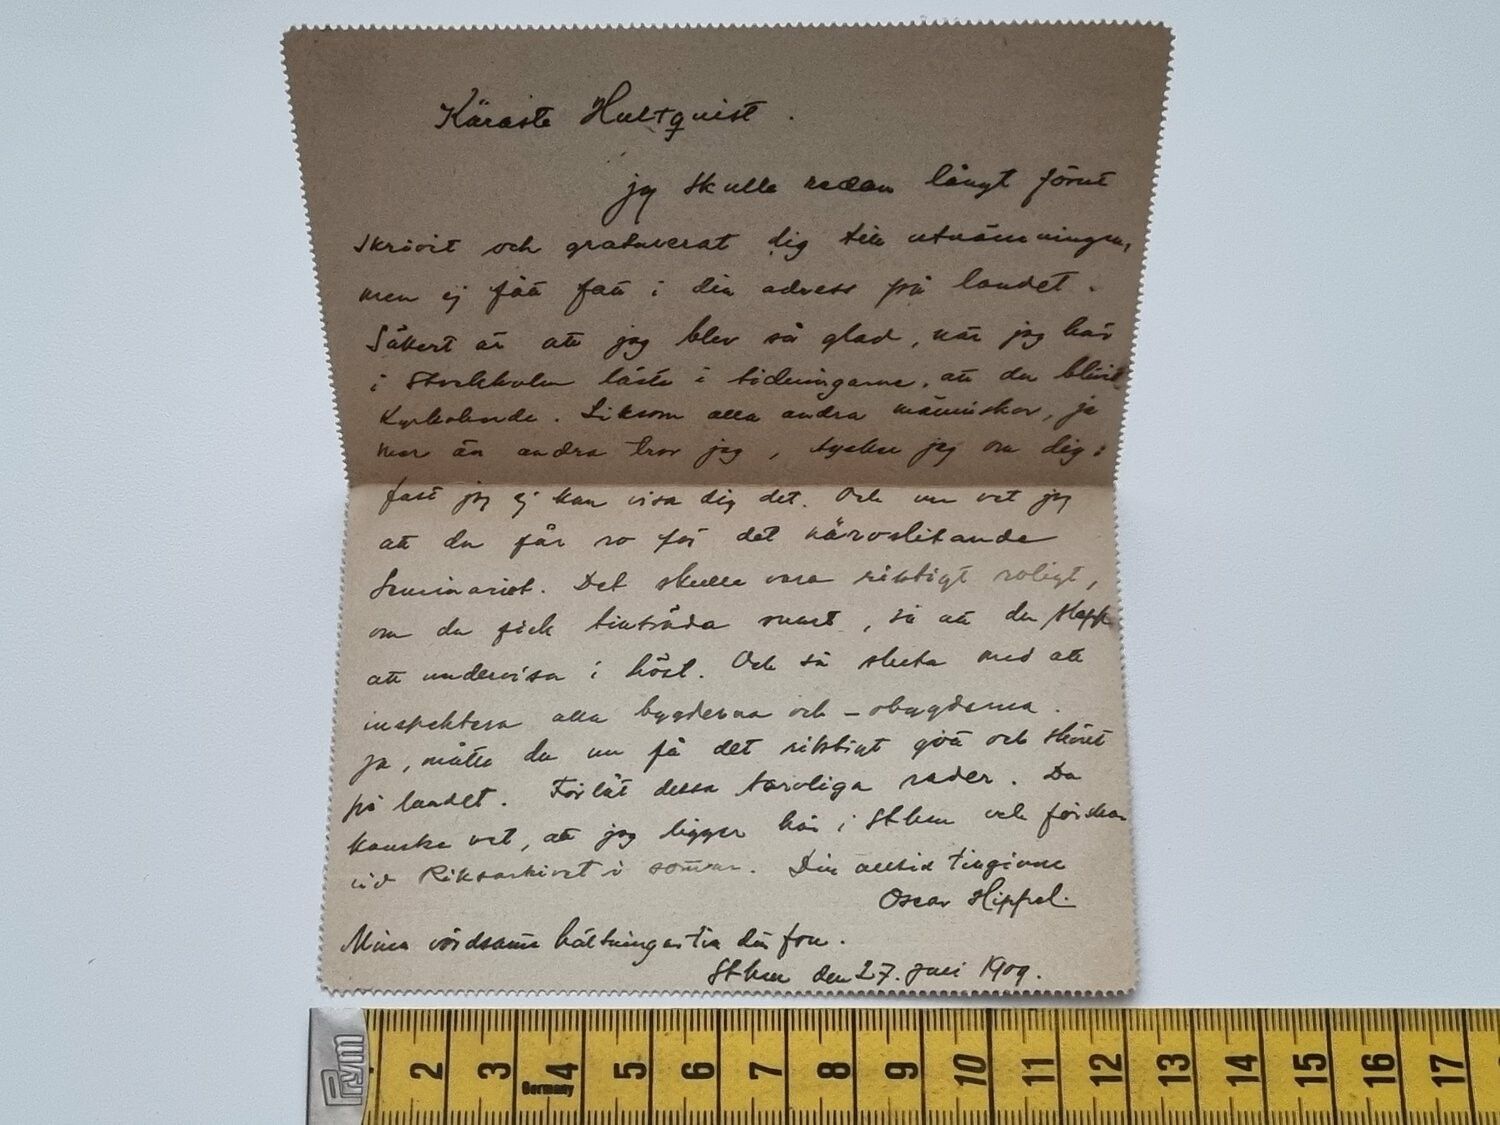 Käraste Hultquist.
jag skulle redan långt förut
skrivit och gratulerat dig till utnämningen,
men ej fått fatt i din adress på landet.
Säkert är att jag blev så glad, när jag här
i Stockholm läste i tidningarne, att du blivit
Kyrkoherde. Liksom alla andra människor, ja
mer än andra tror jag, tycker jag om dig:
fast jag ej kan visa dig det. Och nu vet jag
att du får ro för det närvslitande
Seminariet. Det skulle vara riktigt roligt,
om du fick tillträda snart, så att du slapp
att undervisa i höst. Och så sluta med att
inspektera alla bygderna och - obygderna.
Ja, måtte du nu få det riktigt gott och skönt
på landet. Förlåt dessa torvliga rader. Du
kanske vet, att jag ligger här i Sthlm och forskar
vid Riksarkivet i sommar. Din alltid tillgivne
Oscar Hippel.
Mina vördsamma hälsningar till din fru.
Sthlm den 27. juli 1909.
Prym
2 3 4 5 6 7 8 9 10 11 12 13 14 15 16 17
Germany